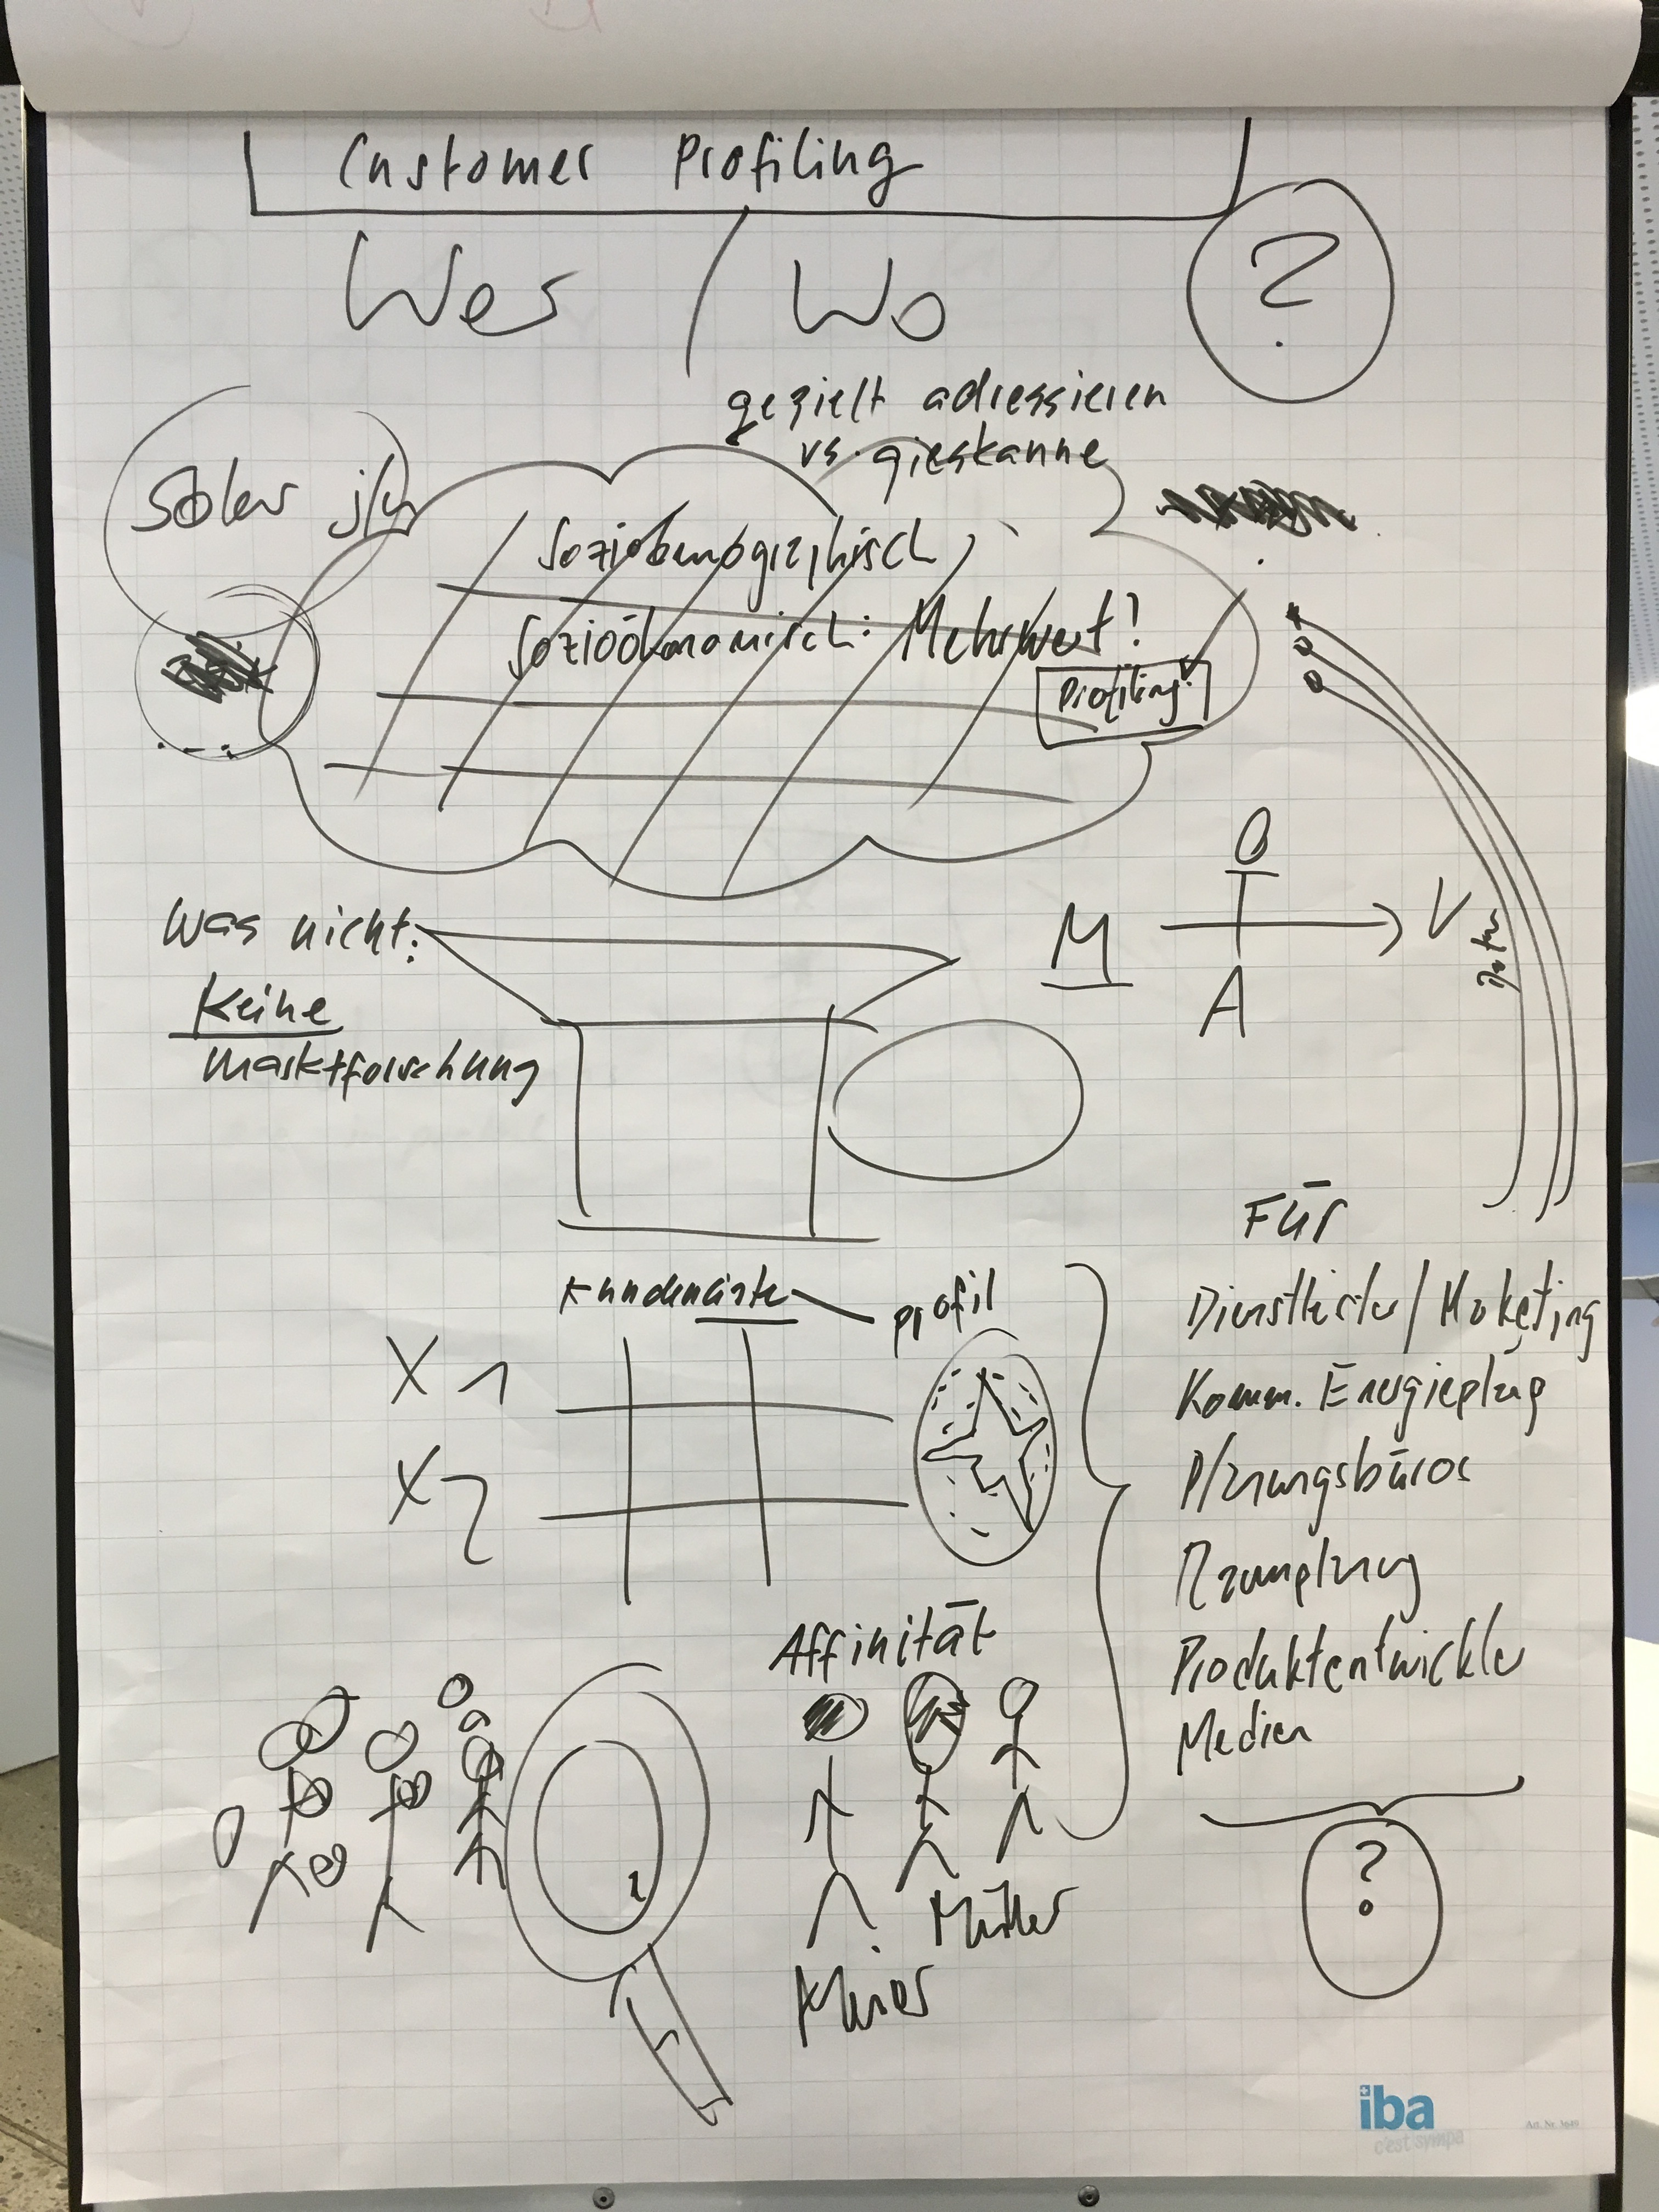 Customer Profiling
Wer / Wo
?
gezielt adressieren
vs. gieskanne
Solar
Soziodemographisch
Sozioökonomisch: Mehrwert!
Profiling!
M
A
V
Was nicht:
Keine
Marktforschung
Für
profil
X 1
X 2
Dienstleister / Maketing
Komm. Energieplag
Planungsbüros
Raumplanung
Produktentwickler
Medien
Affinität
?
Müller
iba
c'est sympa
Art. Nr. 3649